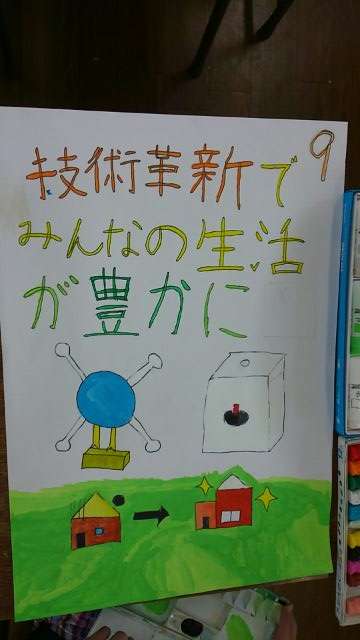 9
技術革新で
みんなの生活
が豊かに